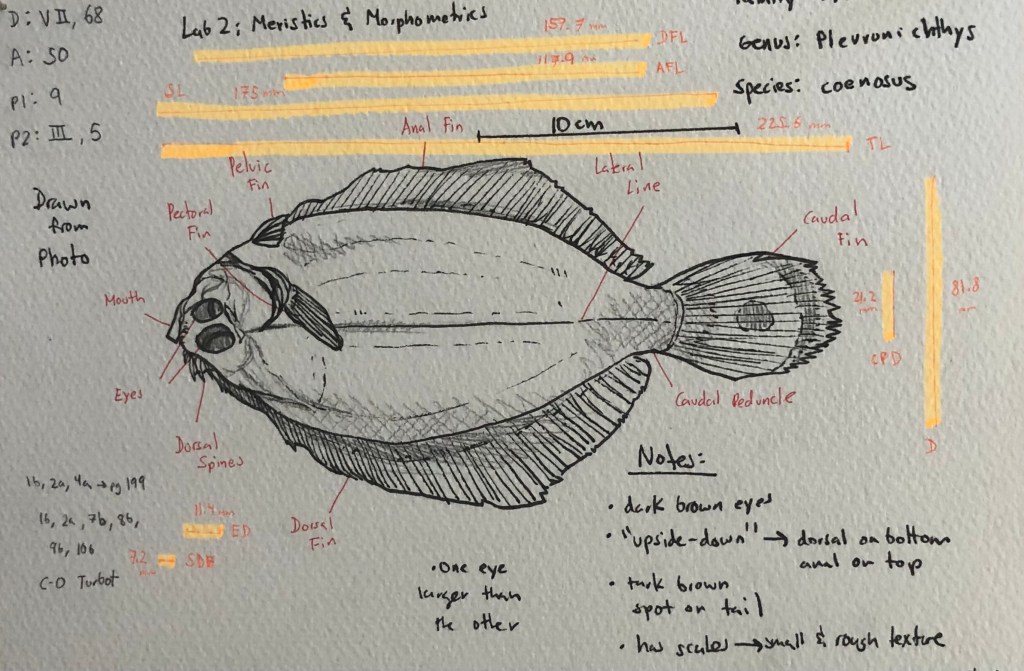 D: VII, 68
A: 50
P1: 9
P2: III, 5
Lab 2: Meristics & Morphometrics
Genus: Pleuronichthys
Species: coenosus
157.7 mm
DFL
117.9 mm
AFL
SL
175 mm
10 cm
225.6 mm
TL
Drawn
from
Photo
Anal Fin
Pelvic
Fin
Pectoral
Fin
Lateral
Line
Caudal
Fin
Mouth
Eyes
Dorsal
Spines
Dorsal
Fin
Caudal Peduncle
21.2
mm
CPD
81.8
mm
D
1b, 2a, 4a → pg 199
1b, 2a, 7b, 8b,
9b, 10b
C-O Turbot
11.4 mm
ED
7.2
mm
• One eye
larger than
the other
Notes:
• dark brown eyes
• "upside-down" → dorsal on bottom
anal on top
• brown
spot on tail
• has scales → small & rough texture